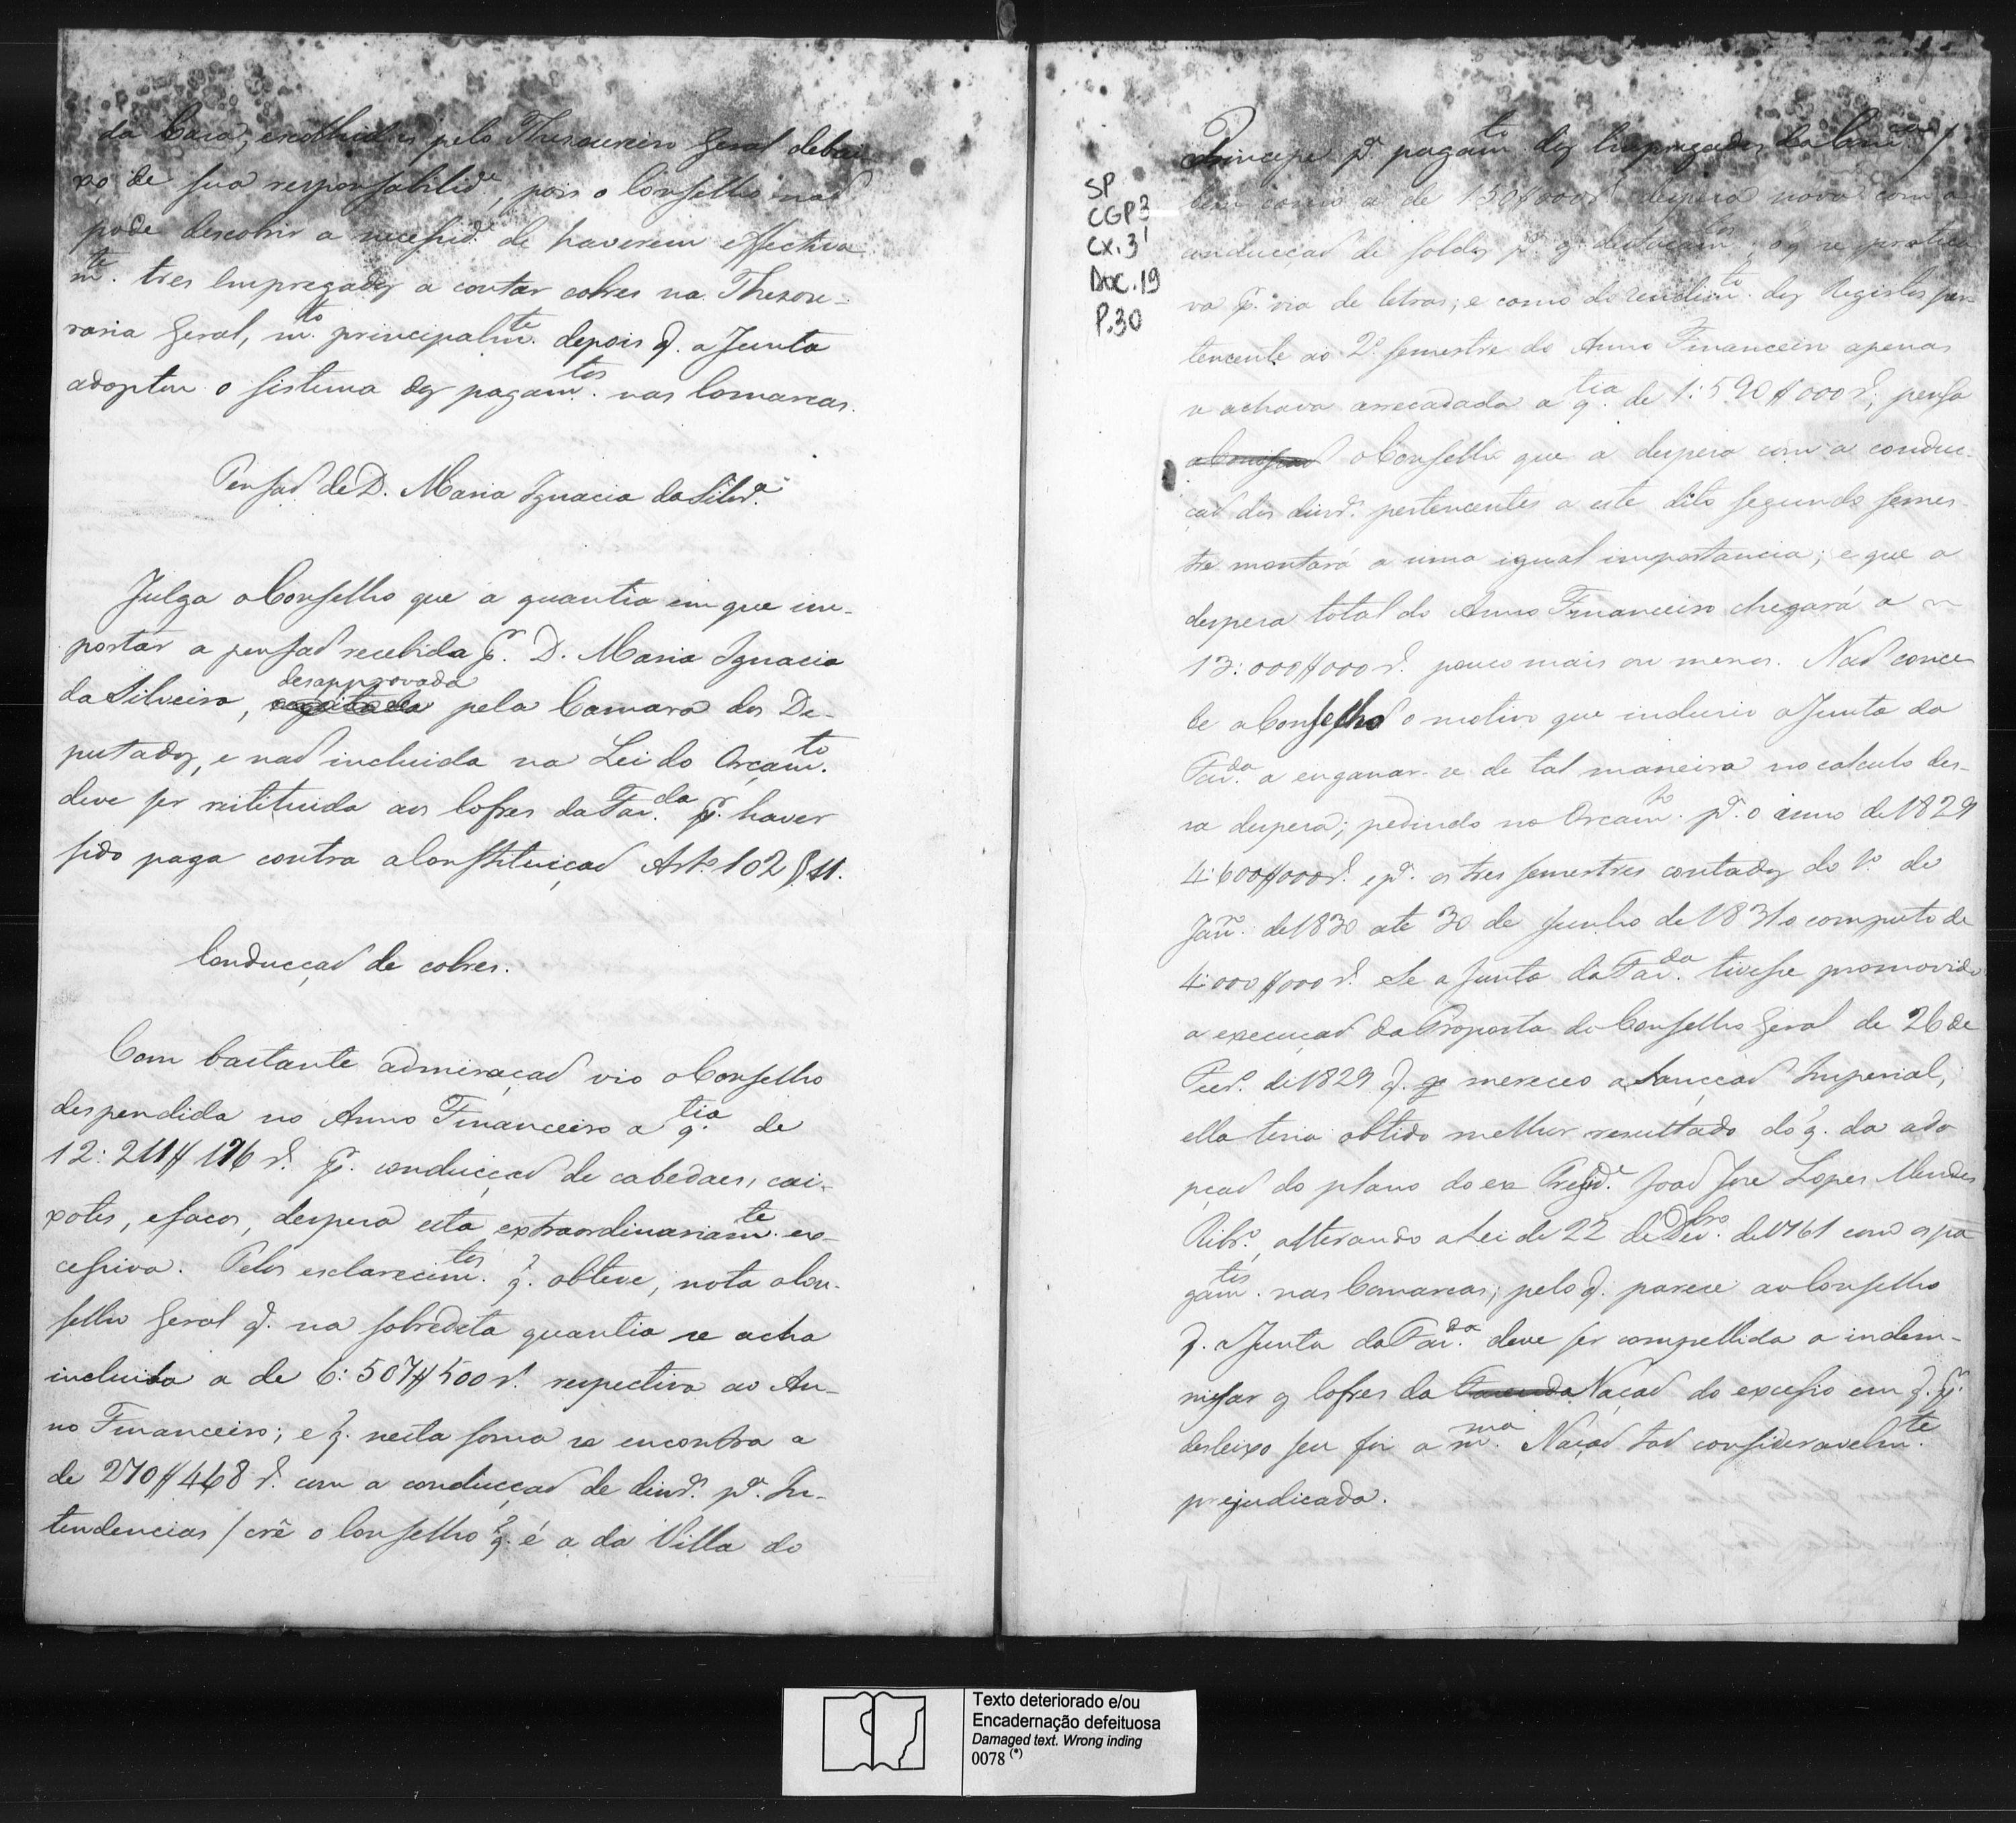 da Casa, escolhidos pelo Thesoureiro Geral debai-
xo de sua responsabilid.e, pois o Conselho naõ
pode descobrir a necessid.e de haverem effectiva-
m.te tres Empregados a contar cobres na Thesou-
raria Geral, m.to principalm.te depois q. a Junta
adoptou o sistema dos pagam.tos nas Comarcas.
Pensaõ de D. Maria Ignacia da Silvr.a
Julga o Conselho que a quantia em que im-
portar a pensaõ recebida p.r D. Maria Ignacia
da Silveira, desapprovada pela Camara dos De-
putados, e naõ incluida na Lei do Orçam.to
deve ser restituida aos Cofres da Faz.da p.r haver
sido paga contra a Constituiçaõ Art.o 102 § 11.
Conducçaõ de cobres.
Com bastante admiraçaõ vio o Conselho
despendida no Anno Financeiro a q.tia de
12:211$176 r. p.r conducçaõ de cabedaes, cai-
xotes, e sacos, despesa esta extraordinariam.te ex-
cessiva. Pelos esclarecim.tos q. obteve, nota o Con-
selho Geral q. na sobredita quantia se acha
incluida a de 6:507$500 r. respectiva ao An-
no Financeiro; e q. nesta soma se encontra a
de 270$468 r. com a conducçaõ de dinr.o p.a In-
tendencias / crê o Conselho q. é a da Villa do
SP
CGP3
CX.31
DOC.19
P.30
Principe p.a pagam.to dos Empregados da Casa /
bem como a de 150$000 r. despesa nova com a
conducçaõ de soldos p.a os destacam.tos, o q. se pratica-
va p.r via de letras; e como do rendim.to dos Registos per-
tencente ao 2.o semestre do Anno Financeiro apenas
se achava arrecadada a q.tia de 1:590$000 r., pensa
o Conselho que a despesa com a conduc-
çaõ dos dinr.os pertencentes a este dito segundo semes-
tre montará a uma igual importancia; e que a
despesa total do Anno Financeiro chegará a
13:000$000 r. pouco mais ou menos. Naõ conce-
be o Conselho o motivo que induzio a Junta da
Faz.da a enganar-se de tal maneira no calculo des-
sa despesa; pedindo no Orçam.to p.a o anno de 1829
4:600$000 r. e p.a os tres semestres contados do 1.o de
Jan.ro de 1830 até 30 de Junho de 1831 o computo de
4:000$000 r. Se a Junta da Faz.da tivesse promovido
a execuçaõ da Proposta do Conselho Geral de 26 de
de 1829 q. mereceo a Sancçaõ Imperial,
ella teria obtido melhor resultado do q. da ado-
pçaõ do plano do ex Presid.e Joaõ José Lopes Mendes
Ribr.o, alterando a Lei de 22 de Dez.bro de 1761 com os pa-
gam.tos nas Comarcas; pelo q. parece ao Conselho
q. a Junta da Faz.da deve ser compellida a indem-
nisar os Cofres da Fazenda Naçaõ do excesso em q. p.r
desleixo seu foi a m.ma Naçaõ taõ consideravelm.te
prejudicada.
Texto deteriorado e/ou
Encadernação defeituosa
Damaged text. Wrong inding
0078 (*)